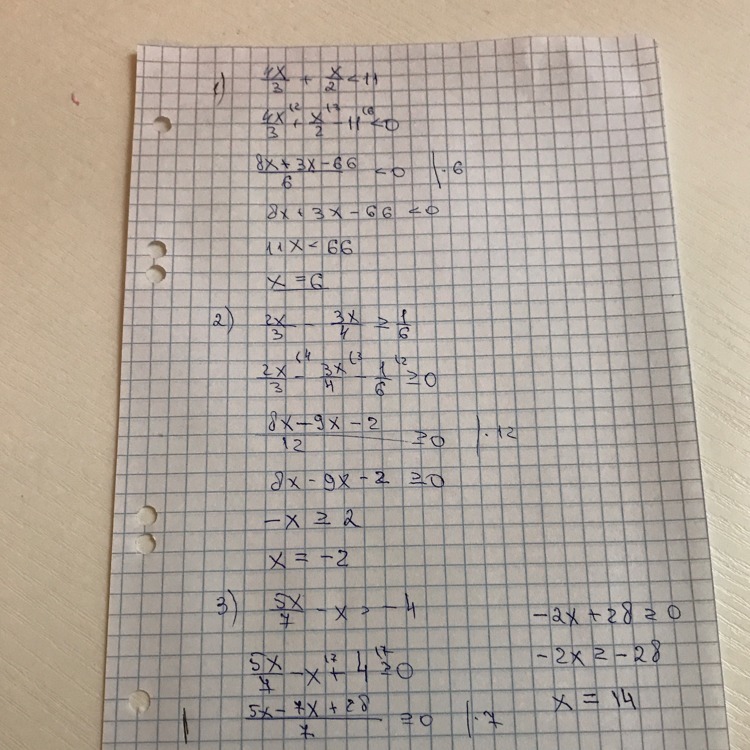 1) 4x/3 + x/2 < 11
4x/3 (2 + x/2 (3 - 11 (6 < 0
8x + 3x - 66 / 6 < 0 | · 6
8x + 3x - 66 < 0
11x < 66
x = 6
2) 2x/3 - 3x/4 ≥ 1/6
2x/3 (4 - 3x/4 (3 - 1/6 (2 ≥ 0
8x - 9x - 2 / 12 ≥ 0 | · 12
8x - 9x - 2 ≥ 0
-x ≥ 2
x = -2
3) 5x/7 - x > -4
5x/7 - x (7 + 4 (7 ≥ 0
5x - 7x + 28 / 7 ≥ 0 | · 7
-2x + 28 ≥ 0
-2x ≥ -28
x = 14